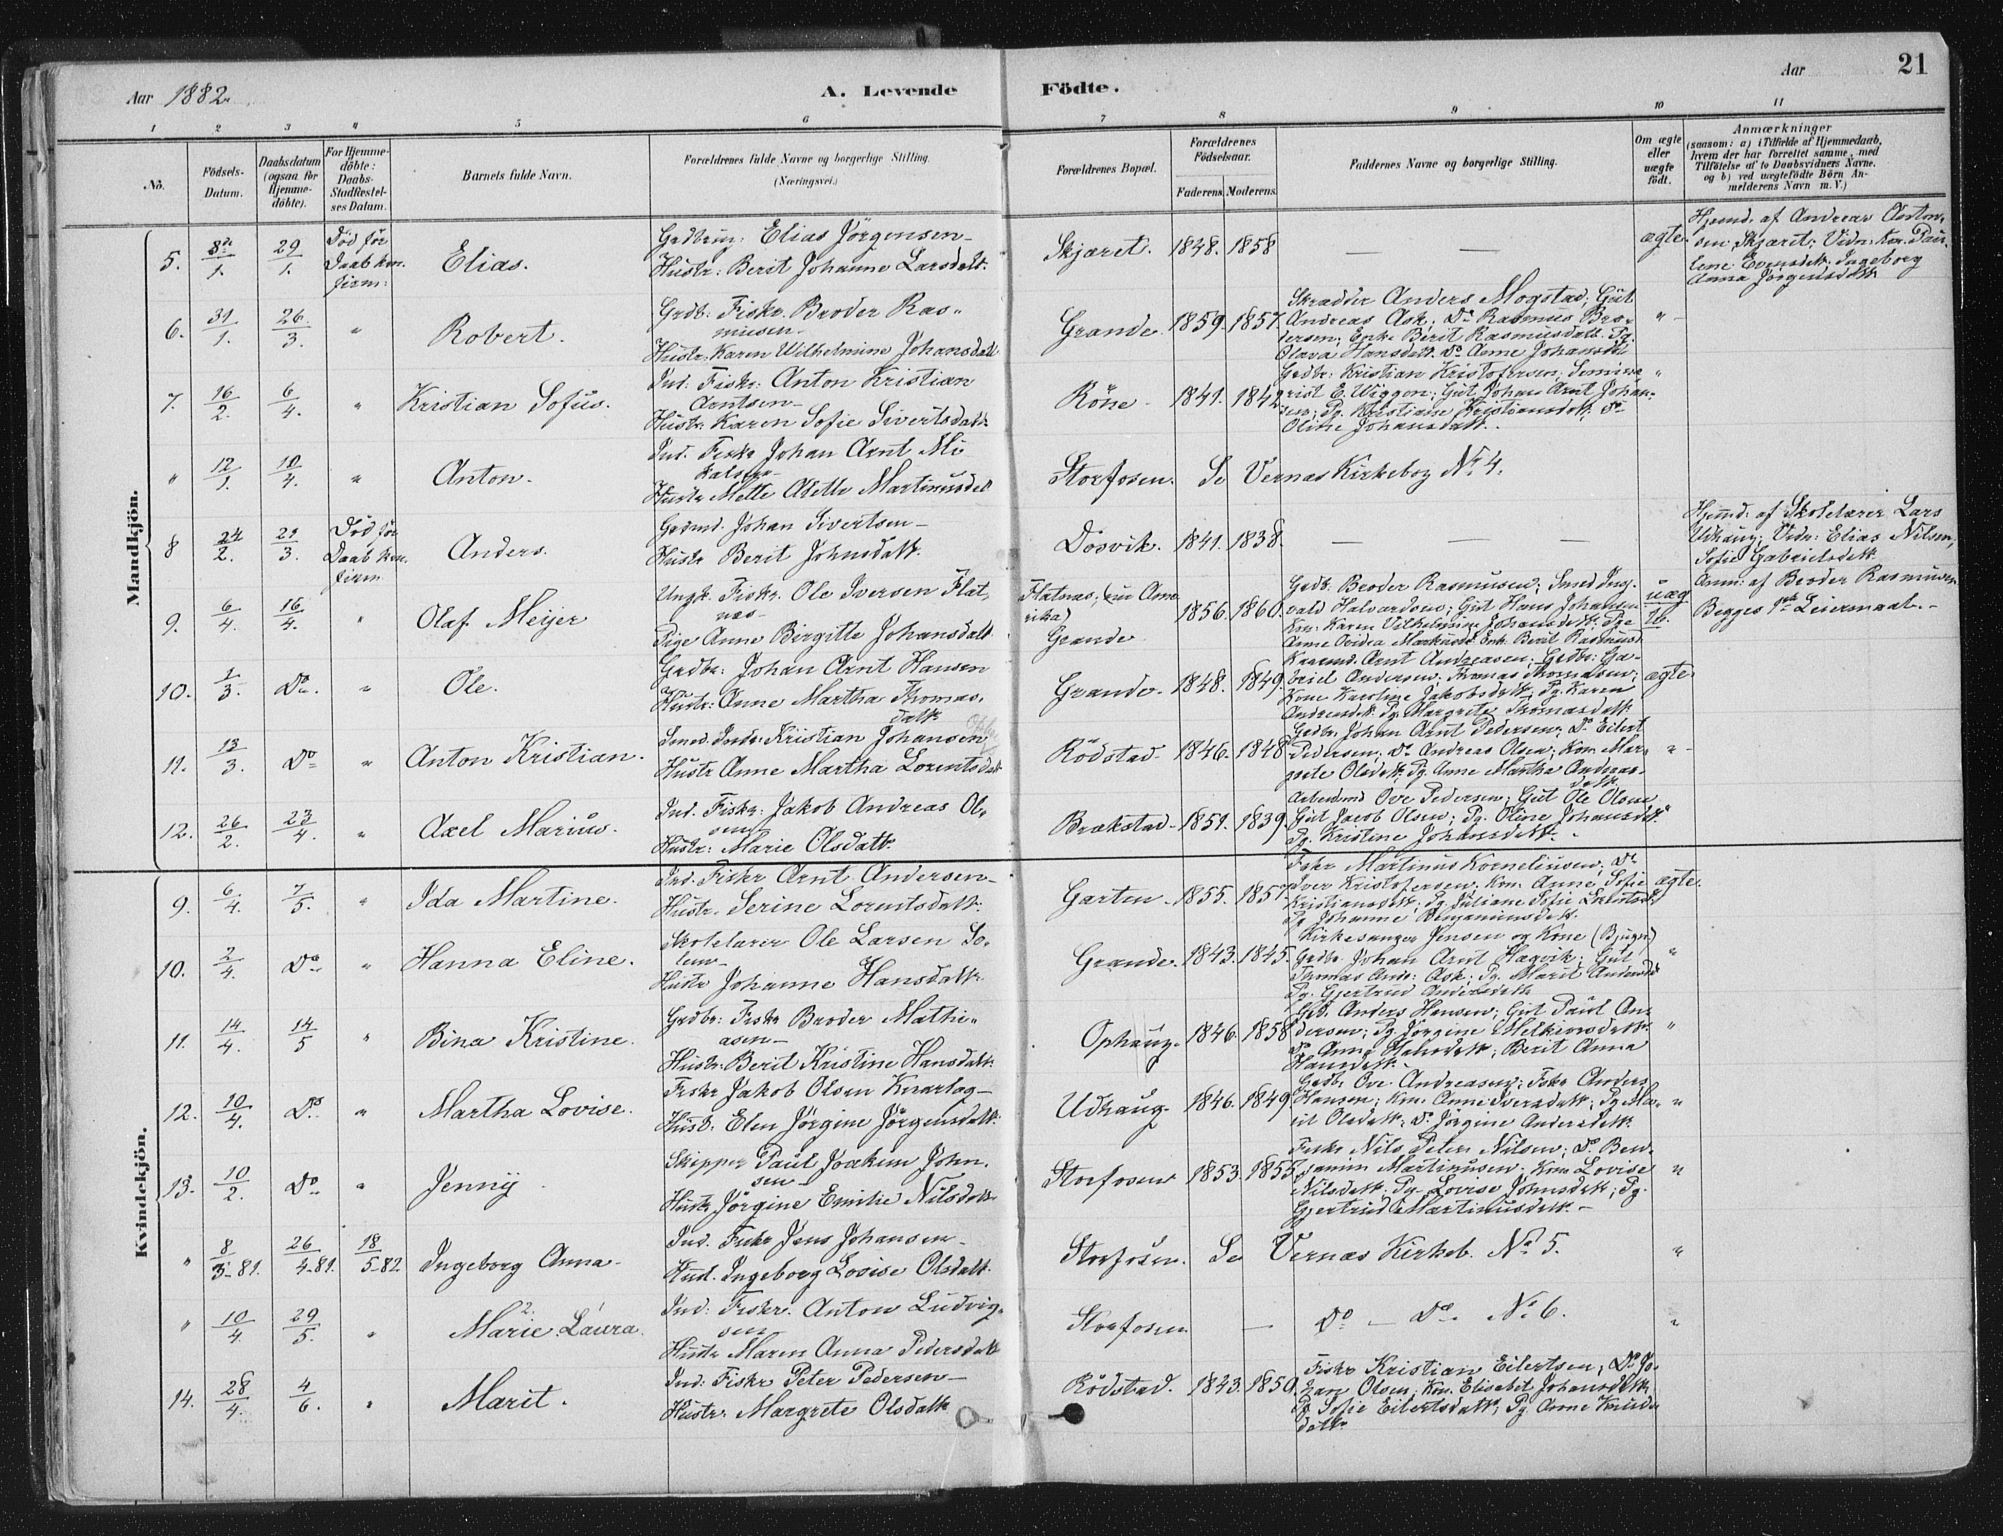 Aar 1882.
A. Levende Födte.
Aar
21
1 2 3 4 5 6 7 8 9 10 11
No.
Födsels-Datum.
Daabsdatum (ogsaa for Hjemme-döbte).
For Hjemme-döbte: Daabs-Stadfæstel-ses Datum.
Barnets fulde Navn.
Forældrenes fulde Navne og borgerlige Stilling. (Næringsvei.)
Forældrenes Bopæl.
Forældrenes Födselsaar.
Faderens. Moderens.
Faddernes Navne og borgerlige Stilling.
Om ægte eller uægte födt.
Anmærkninger
(saasom: a) i Tilfælde af Hjemmedaab, hvem der har forrettet samme, med Tilföielse af to Daabsvidners Navne. og b) ved uægtefödte Börn An-melderens Navn m. V.)
Mandkjön.
5. 29/1. Död før Daab kon. firm: Elias.
Elias Jörgensen
Hustr: Berit Johanne Larsdatt.
Skjæret. 1848. 1858 — — ægte.
Hjemd. af Andreas Anton-
sen Skjæret; Vidn: Kon. Pau-
line Evensdatt. Ingeborg
Anna Jörgensdatt
6. 31/1. 26/3. " Robert.
Grdb: Fiskr. Broder Ras-
musen
Hustr: Karen Wilhelmine Johansdatt
Grande. 1859. 1857. "
Skrædder Anders Mogstad; Gut
Andreas Ask. Do Rasmus Bro-
dersen; Enke Berit Rasmusdatt. Pg.
Olava Hansdatt. Do Anne Johansdt
7. 16/2. 6/4. " Kristian Sofus.
Ind. Fiskr: Anton Kristian
Arntsen
Hustr: Karen Sofie Sivertsdatt.
Röne 1841. 1842 "
Grdbr: Kristian Kristofersen; Semina-
rist E. Wiggen; Gut Johan Arnt Johan-
sen; Pg. Kristiane Kristiansdatt. Do
Oline Johansdatt.
" 12/1. 10/4. " Anton.
Ind. Fiskr Johan Arnt Mi-
kalsen
Hustr Mette Martinusdat
Storfosen. Se Vernes Kirkebog No 4.
8 24/2. 29/3. Död før Daab kon. firm Anders.
Johan Sivertsen
Hustr Berit Johnsdatt.
Dosvik. 1841. 1838. — — —
Hjemd: af Skolelærer Lars
Udhaug. Vidn: Elias Nilsen,
Sofie Gabrielsdatt
9. 6/4. 16/4. " Olaf Meijer
Ungk. Fiskr. Ole Iversen Flat-
næs
Pige Anne Birgitte Johansdatt
Flatnæs; (nu Ame-
rika)
Grande 1856. 1860. uæg
Grdb. Broder Rasmusen; Smed Ing-
vald Halvardsen; Gut Hans Johansen
Kon. Karen Vilhelmine Johansdatt. Pge
Enk. Berit Rasmusd.
Anm: af Broder Rasmusen
Begges 1ste Leiermaal.
10. 1/3. Do. " Ole.
Grdbr: Johan Arnt Hansen
Hustr: Anne Martha Thomas-
datt
Grande. 1848. 1849. ægte
Arnt Andreasen; Grdbr: Ga-
briel Andersen; Tomas Thomasen;
Kone Karoline Jakobsdatt; Pg. Karen
Andreasdatt. Pg. Margrete Thomasdatt
11. 13/3. Do " Anton Kristian.
Smed Indr: Kristian Johansen
Hustr Anne Martha Lorentsdat
Rödstad. 1846. 1848 "
Grdbr. Johan Arnt Pedersen; Do Eilert
Pedersen; Do Andreas Olsen; Kon: Mar-
grete Olsdatt, Pg. Anne Martha Andreas-
datt.
12. 26/2. 23/4. " Axel Marius.
Ind. Fiskr: Jakob Andreas Ol-
sen
Hustr: Marie Olsdatt.
Brækstad. 1851. 1839. "
Arbeidsmd Ove Pedersen; Gut Ole Olsen
Gut Jacob Olsen; Pg. Oline Johansdat.
Pg. Kristine Johansdatt.
Kvindekjön.
9. 6/4. 7/5. " Ida Martine.
Ind. Fiskr Arnt Andersen
Hustr. Serine Lorentsdatt.
Garten. 1855. 1857. ægte.
Fiskr Martinus Korneliusen; Do
Iver Kristofersen; Kon. Anne Sofie
Kristiansdatt; Pg. Juliane Sofie
Pg. Johanne Benjaminsdatt.
10. 2/4. Do " Hanna Eline.
Skolelærer Ole Larsen So-
lem
Hustr Johanne Hansdatt.
Grande. 1843. 1845. "
Kirkesanger Jensen og Kone (Bjugn)
Grdbr Johan Arnt Høgvik; Gut
Thomas Ask; Pg. Marit Andersdt
Pg. Gjertrud Andersdatt
11. 14/4. 14/5 " Bina Kristine.
Grdbr: Fiskr Broder Mathi-
asen
Hustr: Berit Kristine Hansdatt.
Ophaug. 1846. 1858 "
Anders Hansen; Gut Paul An-
dersen; Pg. Jörgine Melkiorsdatt
Do Anna Hansdatt; Berit Anna
Hansdatt.
12. 10/4. Do. " Martha Lovise.
Fiskr Jakob Olsen Kvarlag
Hust. Elen Jörgine Jörgensdatt.
Udhaug. 1846. 1849 "
Grdbr Ove Andreasen; Fskr Anders
Hansen; Kon. Anne Iversdatt; Pg Ma-
rit Olsdatt. Do Jörgine Andersdatt
13. 10/2. Do " Jenny
Skipper Paul Joakim John-
sen
Hustr Jörgine Emilie Nilsdatt
Storfosen 1853. 1855. "
Fiskr Nils Peter Nilsen; Do Ben-
jamin Martinusen; Kone Lovise
Nilsdatt; Pg. Lovise Johnsdatt; Pg.
Gjertrud Martinusdatt.
" 8/3-81. 26/4-81. 18/5-82 Ingeborg Anna
Ind. Fiskr Jens Johansen
Hust. Ingeborg Lovise Olsdatt.
Storfosen. Se Vernes Kirkeb. No 5. "
" 10/4. 29/5. " Marie Laura.
2. 1
Ind: Fiskr. Anton Ludvig-
sen
Hustr Maren Anna Pedersdatt
Storfosen — Do — Do No 6. "
14. 28/4. 4/6. " Marit.
Ind: Fiskr Peter Pedersen
Hustr: Margrete Olsdatt
Rödstad. 1843. 1850.
Fiskr Kristian Eilertsen; Do Jo-
han Olsen; Kon. Elisabet Johansdatt;
Pg. Sofie Eilertsdatt; Pg. Anne
datt